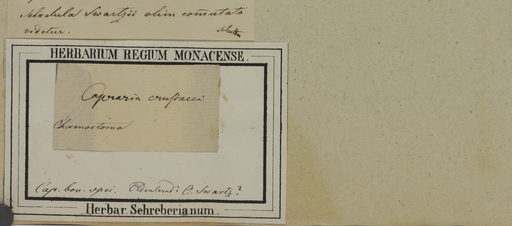 Schedula Swartzii olim comutata
videtur. Schultes
HERBARIUM REGIUM MONACENSE.
Capraria crustacei
Chaenostoma
Cap. bon. spei. O. Swartz?
Herbar. Schreberianum.